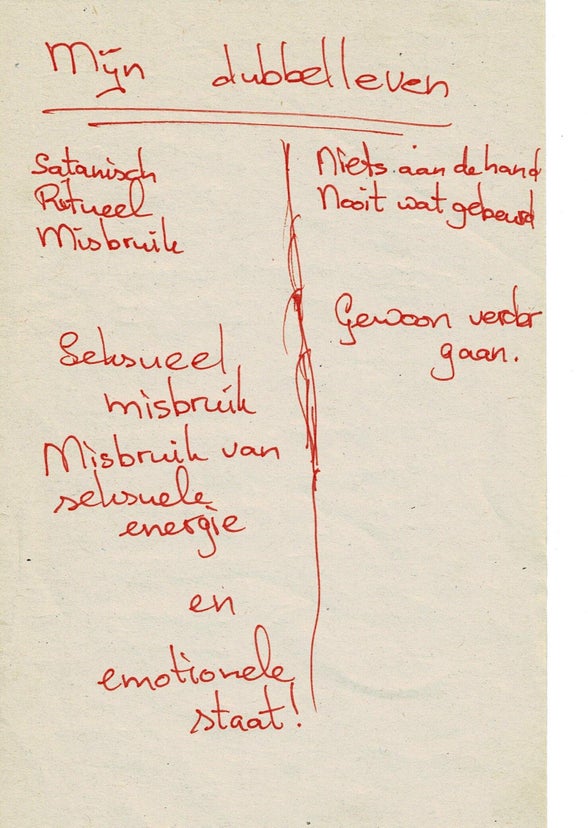 Mijn dubbelleven
Satanisch
Ritueel
Misbruik
Seksueel
misbruik
Misbruik van
seksuele
energie
en
emotionele
staat!
Niets aan de hand
Nooit wat gebeurd
Gewoon verder
gaan.